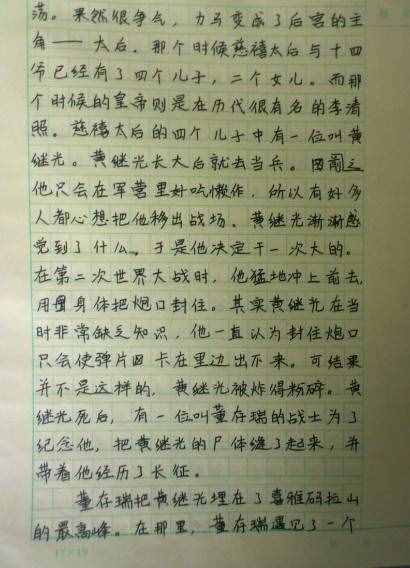 荡。果然很争气，立马变成了后宫的主
角——太后。那个时候慈禧太后与十四
爷已经有了四个儿子，二个女儿。而那
个时候的皇帝则是在历代很有名的李清
照。慈禧太后的四个儿子中有一位叫黄
继光。黄继光长大后就去当兵。因前之
他只会在军营里好吃懒作，所以有好多
人都心想把他移出战场。黄继光渐渐感
觉到了什么。于是他决定干一次大的。
在第二次世界大战时，他猛地冲上前去
用身体把炮口封住。其实黄继光在当
时非常缺乏知识，他一直认为封住炮口
只会使弹片卡在里边出不来。可结果
并不是这样的，黄继光被炸得粉碎。黄
继光死后，有一位叫董存瑞的战士为了
纪念他，把黄继光的尸体缝了起来，并
带着他经历了长征。
董存瑞把黄继光埋在了喜雅码拉山
的最高峰。在那里，董存瑞遇见了一个